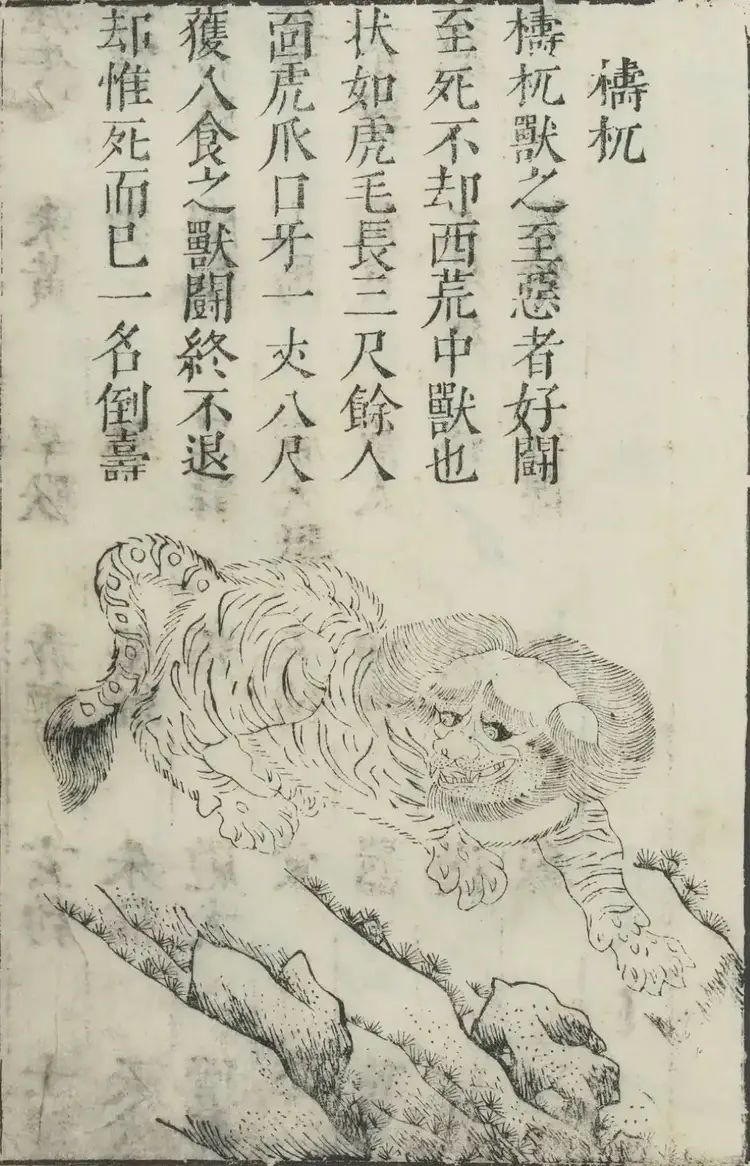 檮杌
檮杌獸之至惡者好鬪
至死不却西荒中獸也
状如虎毛長三尺餘人
面虎爪口牙一丈八尺
獲人食之獸鬪終不退
却惟死而已一名倒壽